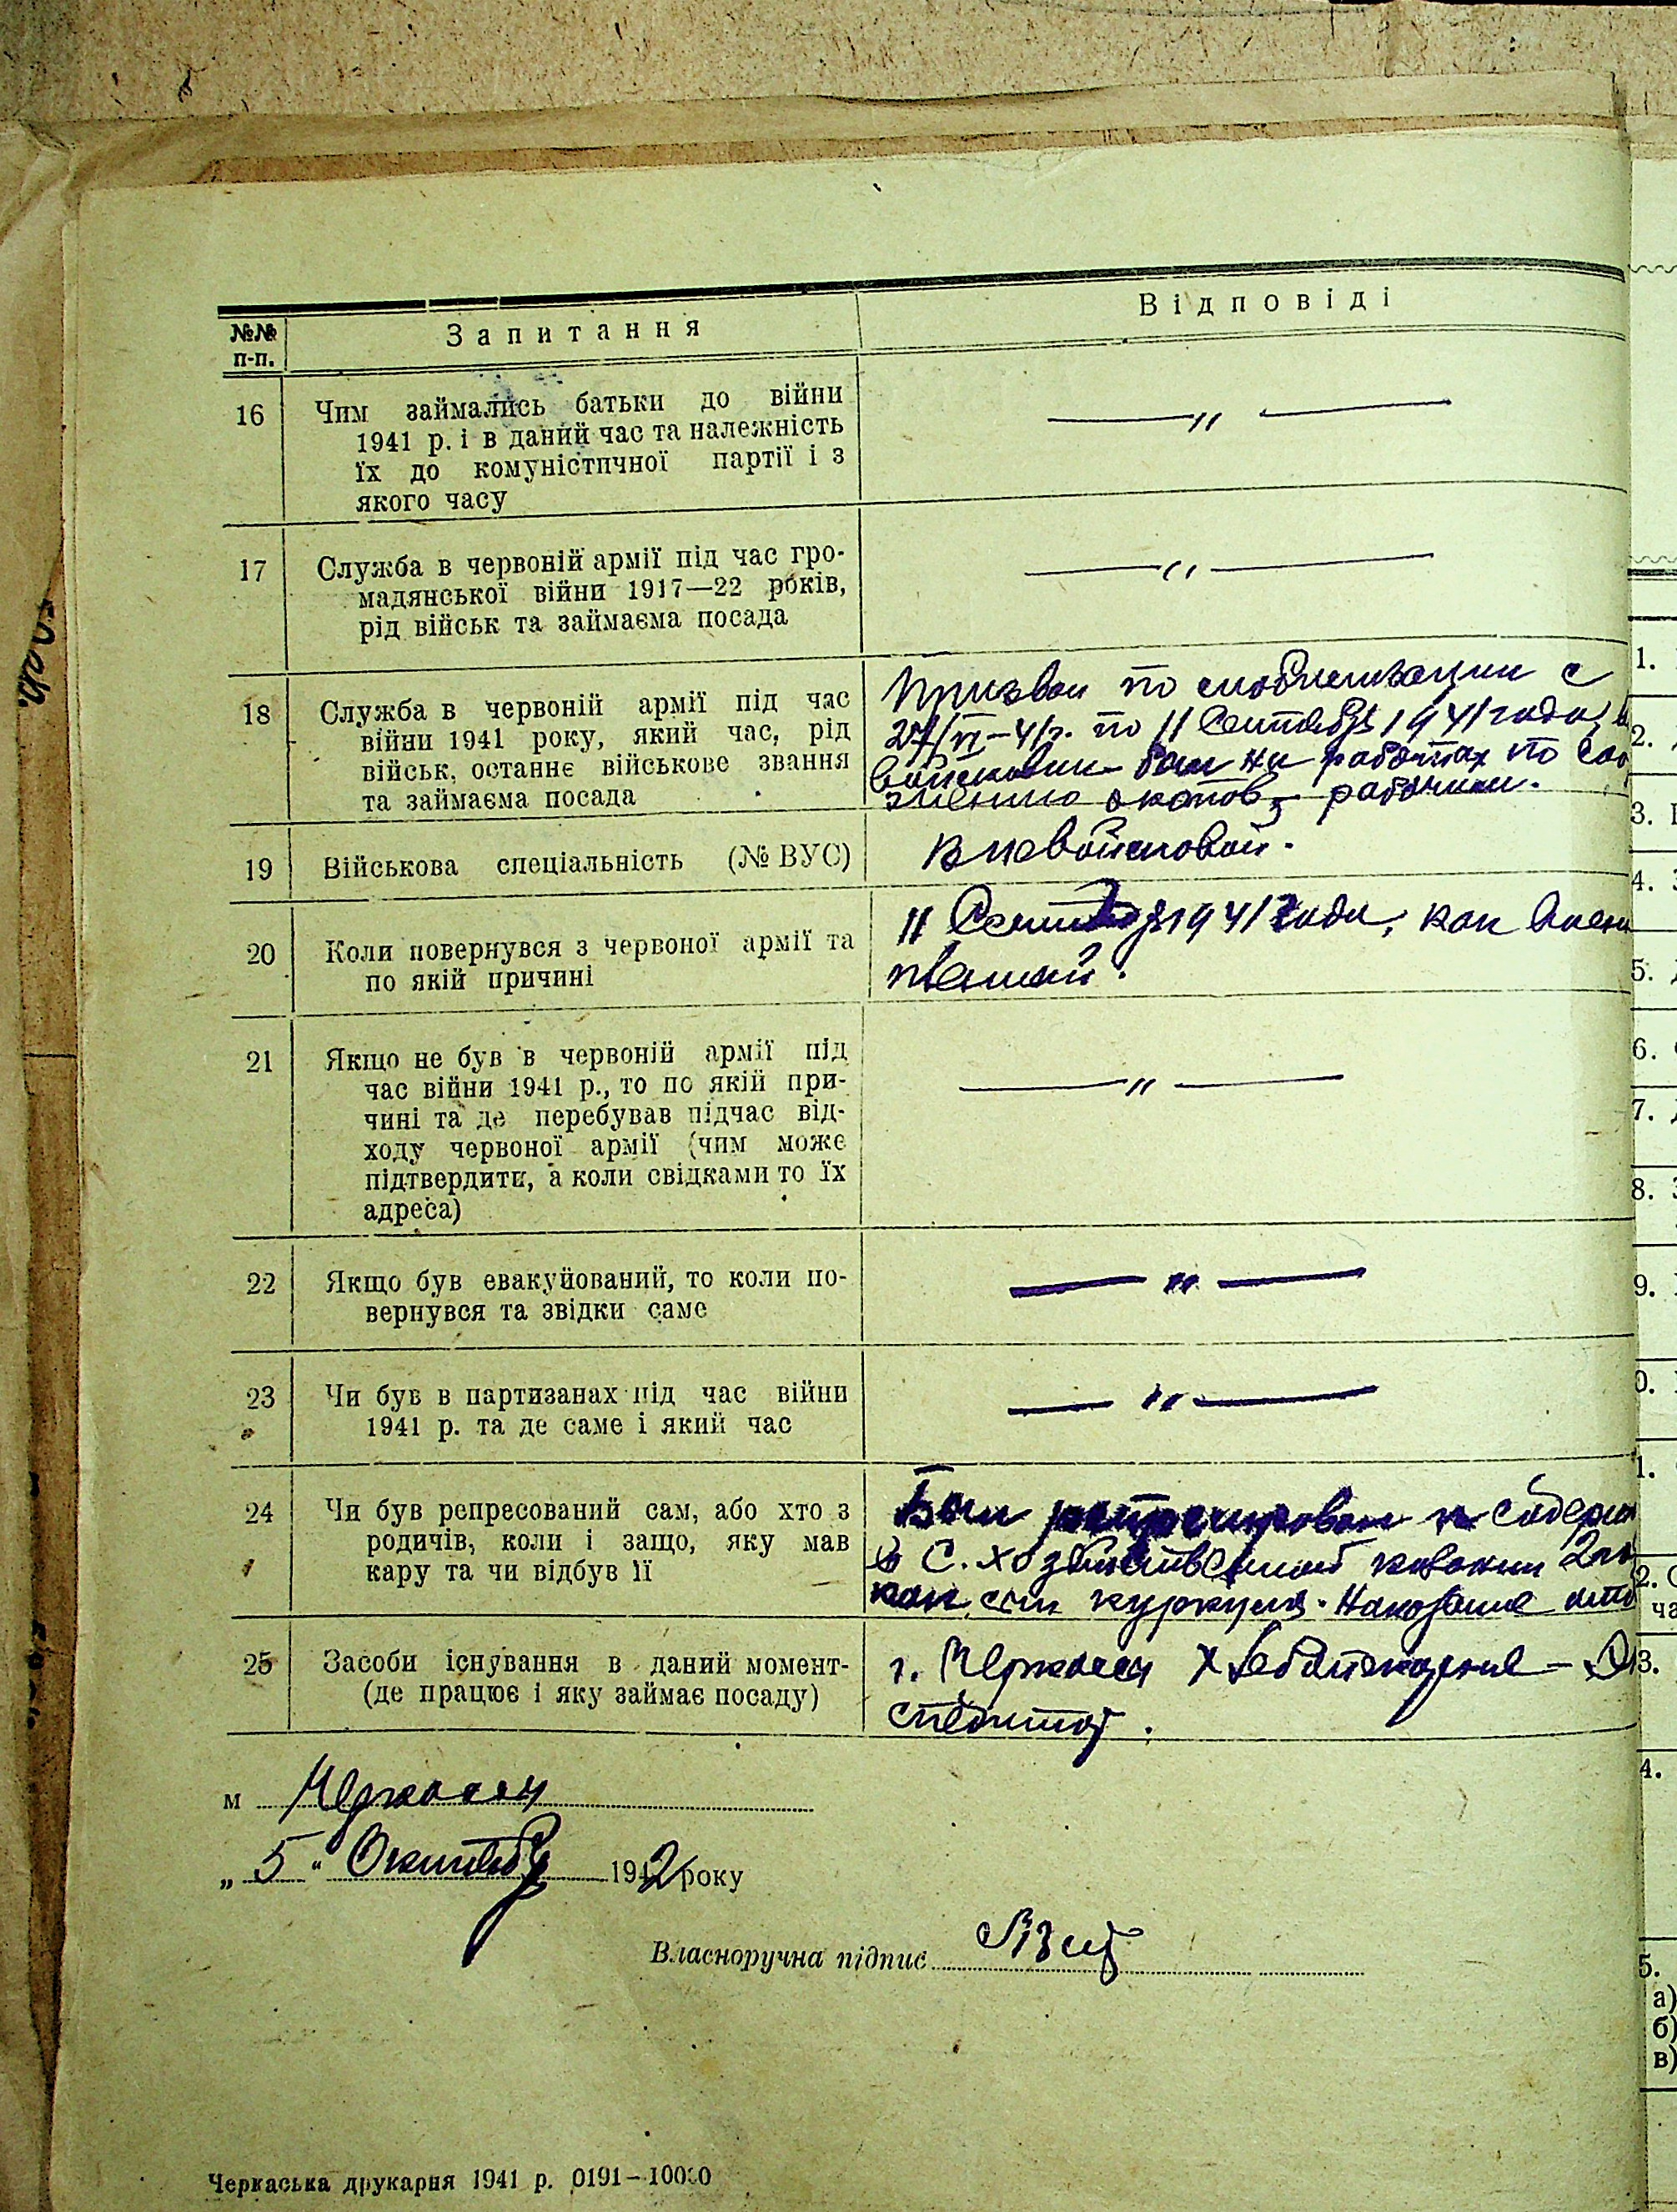 №№ п-п.
Запитання
Відповіді
16
Чим займались батьки до війни
1941 р. і в даний час та належність
їх до комуністичної партії і з
якого часу
— " —
17
Служба в червоній армії під час гро-
мадянської війни 1917—22 років,
рід військ та займаєма посада
— " —
18
Служба в червоній армії під час
війни 1941 року, який час, рід
військ, останнє військове звання
та займаєма посада
Призван по мобилизации с
27/VI–41г. по 11 Сентября 1941 года,
был на работах по
окопов, рабочим.
19
Військова спеціальність (№ ВУС)
Вневойсковой.
20
Коли повернувся з червоної армії та
по якій причині
11 Сентября 1941 года, как воен
пленный.
21
Якщо не був в червоній армії під
час війни 1941 р., то по якій при-
чині та де перебував підчас від-
ходу червоної армії (чим може
підтвердити, а коли свідками то їх
адреса)
— " —
22
Якщо був евакуйований, то коли по-
вернувся та звідки саме
— " —
23
Чи був в партизанах під час війни
1941 р. та де саме і який час
— " —
24
Чи був репресований сам, або хто з
родичів, коли і защо, яку мав
кару та чи відбув її
Был репресирован и содерж
в С. хозяйственной колонии 2
как сын куркуля. Наказание
25
Засоби існування в даний момент-
(де працює і яку займає посаду)
г. Черкассы Хлебопечение –
м Черкассы
„ 5 “ Октября 1942 року
Власноручна підпис
Черкаська друкарня 1941 р. 0191–10000
1.
2.
3.
4.
5.
6.
7.
8.
9.
0.
1.
2.
ча
3.
4.
5.
а)
б)
в)